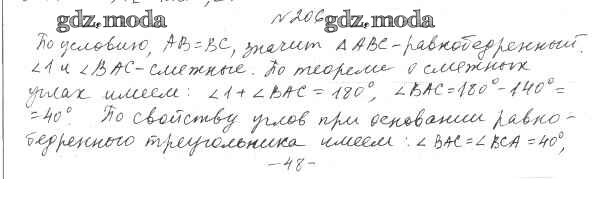 gdz.moda №206 gdz.moda
По условию, AB=BC, значит ΔABC-равнобедренный.
∠1 и ∠BAC-смежные. По теореме о смежных
углах имеем: ∠1+∠BAC=180°, ∠BAC=180°-140°=
=40°. По свойству углов при основании равно-
бедренного треугольника имеем: ∠BAC=∠BCA=40°,
-48-